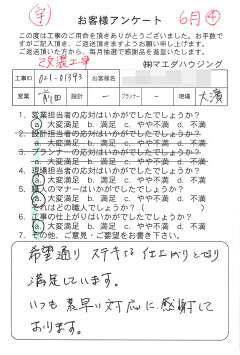 宇
お客様アンケート
6月④
この度は工事のご用命を頂きありがとうございました。お手数で
すがご記入頂き、ご返送頂きますようお願い申し上げます。
ご返送頂いた方から、毎月抽選で感謝品を進呈いたします。
改濃工事
㈱マエダハウジング
工事ID 021-01393 お客様名
営業 前田 設計 ー プランナー ー 現場 大濱
1. 営業担当者の応対はいかがでしたでしょうか?
a. 大変満足 b. 満足 c. やや不満 d. 不満
2. 設計担当者の応対はいかがでしたでしょうか?
a. 大変満足 b. 満足 c. やや不満 d. 不満
3. プランナーの応対はいかがでしたでしょうか?
a. 大変満足 b. 満足 c. やや不満 d. 不満
4. 現場担当者の応対はいかがでしたでしょうか?
a. 大変満足 b. 満足 c. やや不満 d. 不満
5. 職人のマナーはいかがでしたでしょうか?
a. 大変満足 b. 満足 c. やや不満 d. 不満
それはどの職人でしょうか? ( )
6. 工事の仕上がりはいかがでしたでしょうか?
a. 大変満足 b. 満足 c. やや不満 d. 不満
7. その他、ご意見・ご要望をお書き下さい。
希望通り ステキな仕上がりとなり
満足しています。
いつも 素早い対応に感謝して
おります。